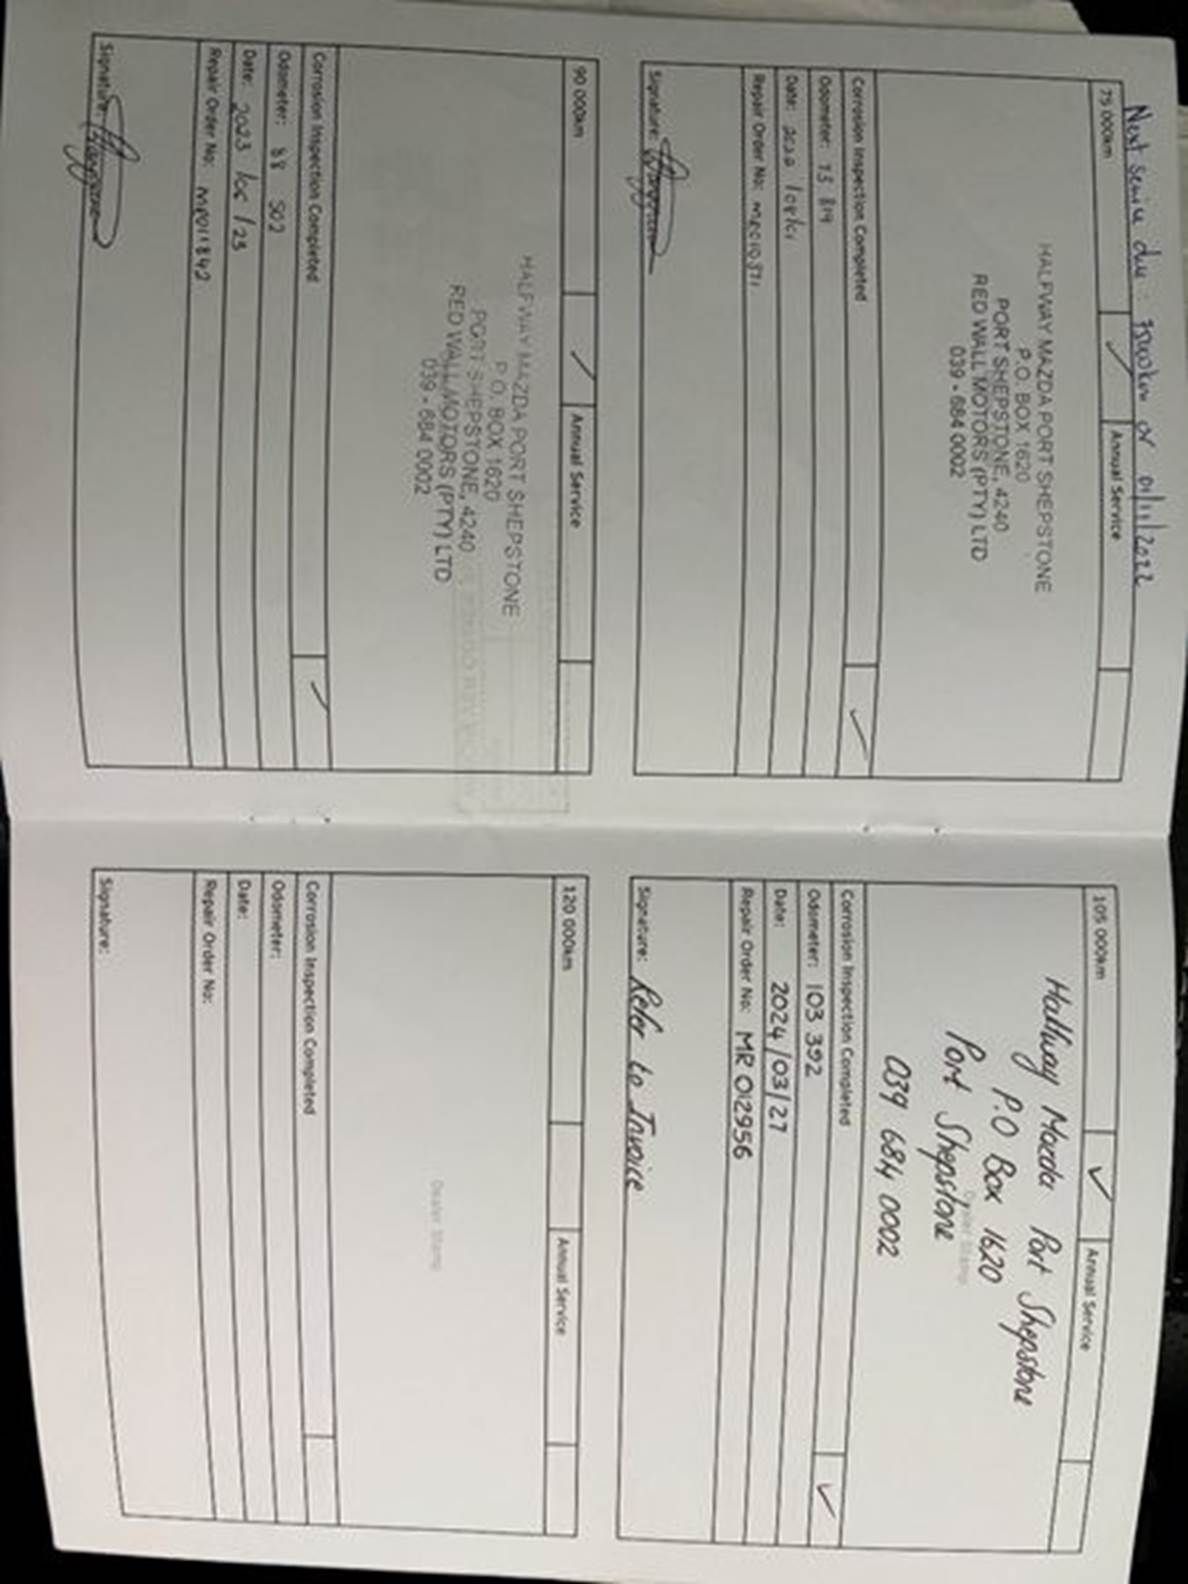 Next service due : 75000km or 01/11/2022
75 000km ✓ Annual Service
HALFWAY MAZDA PORT SHEPSTONE
P.O. BOX 1620
PORT SHEPSTONE, 4240
RED WALL MOTORS (PTY) LTD
039 - 684 0002
Corrosion Inspection Completed ✓
Odometer: 73 819
Date:
Repair Order No:
Signature:
90 000km ✓ Annual Service
HALFWAY MAZDA PORT SHEPSTONE
P.O. BOX 1620
PORT SHEPSTONE, 4240
RED WALL MOTORS (PTY) LTD
039 - 684 0002
Corrosion Inspection Completed ✓
Odometer: 88 502
Date: 2023 /06 /23
Repair Order No: MR011842
Signature:
105 000km ✓ Annual Service
Halfway Mazda Port Shepstone
P.O Box 1620
Port Shepstone
Dealer Stamp
039 684 0002
Corrosion Inspection Completed ✓
Odometer: 103 392
Date: 2024/03/27
Repair Order No: MR 012956
Signature: Refer to Invoice
120 000km Annual Service
Dealer Stamp
Corrosion Inspection Completed
Odometer:
Date:
Repair Order No:
Signature: